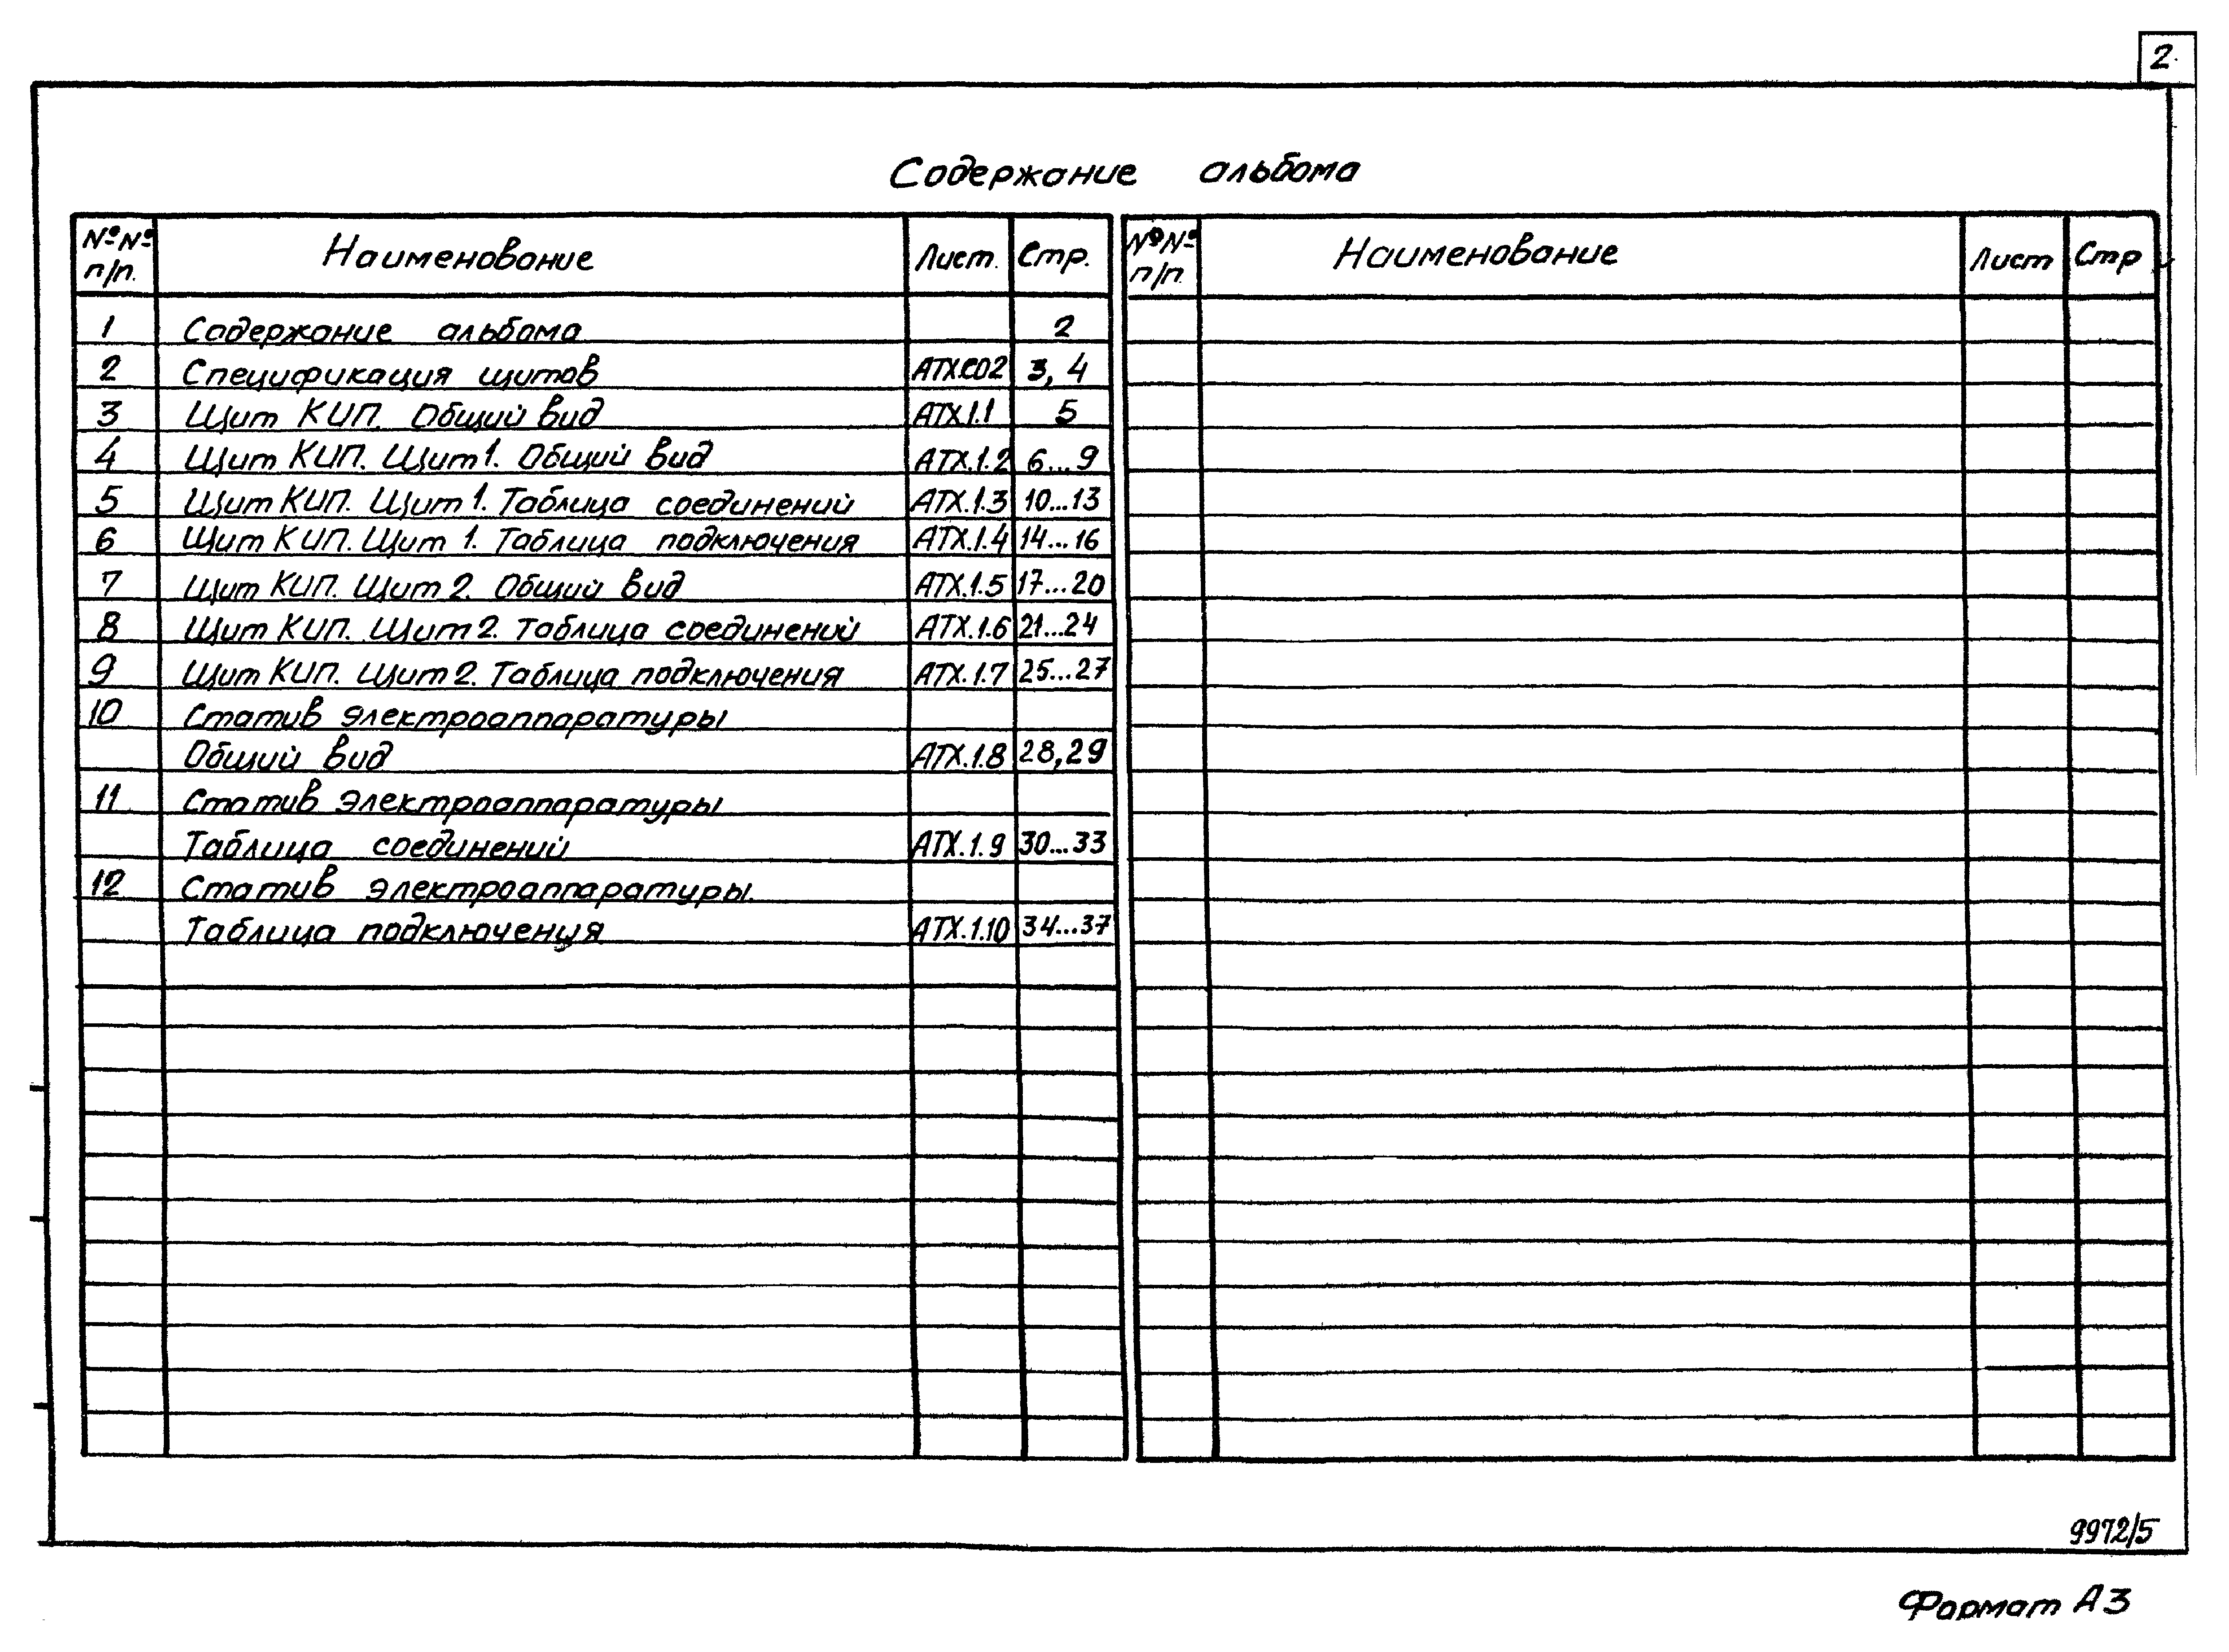 2
Содержание альбома
№№ п/п. Наименование Лист. Стр. №№ п/п. Наименование Лист Стр
1 Содержание альбома 2
2 Спецификация щитов АТХ.СО2 3, 4
3 Щит КИП. Общий вид АТХ.1.1 5
4 Щит КИП. Щит 1. Общий вид АТХ.1.2 6...9
5 Щит КИП. Щит 1. Таблица соединений АТХ.1.3 10...13
6 Щит КИП. Щит 1. Таблица подключения АТХ.1.4 14...16
7 Щит КИП. Щит 2. Общий вид АТХ.1.5 17...20
8 Щит КИП. Щит 2. Таблица соединений АТХ.1.6 21...24
9 Щит КИП. Щит 2. Таблица подключения АТХ.1.7 25...27
10 Статив электроаппаратуры
Общий вид АТХ.1.8 28,29
11 Статив электроаппаратуры
Таблица соединений АТХ.1.9 30...33
12 Статив электроаппаратуры.
Таблица подключения АТХ.1.10 34...37
9972/5
Формат А3